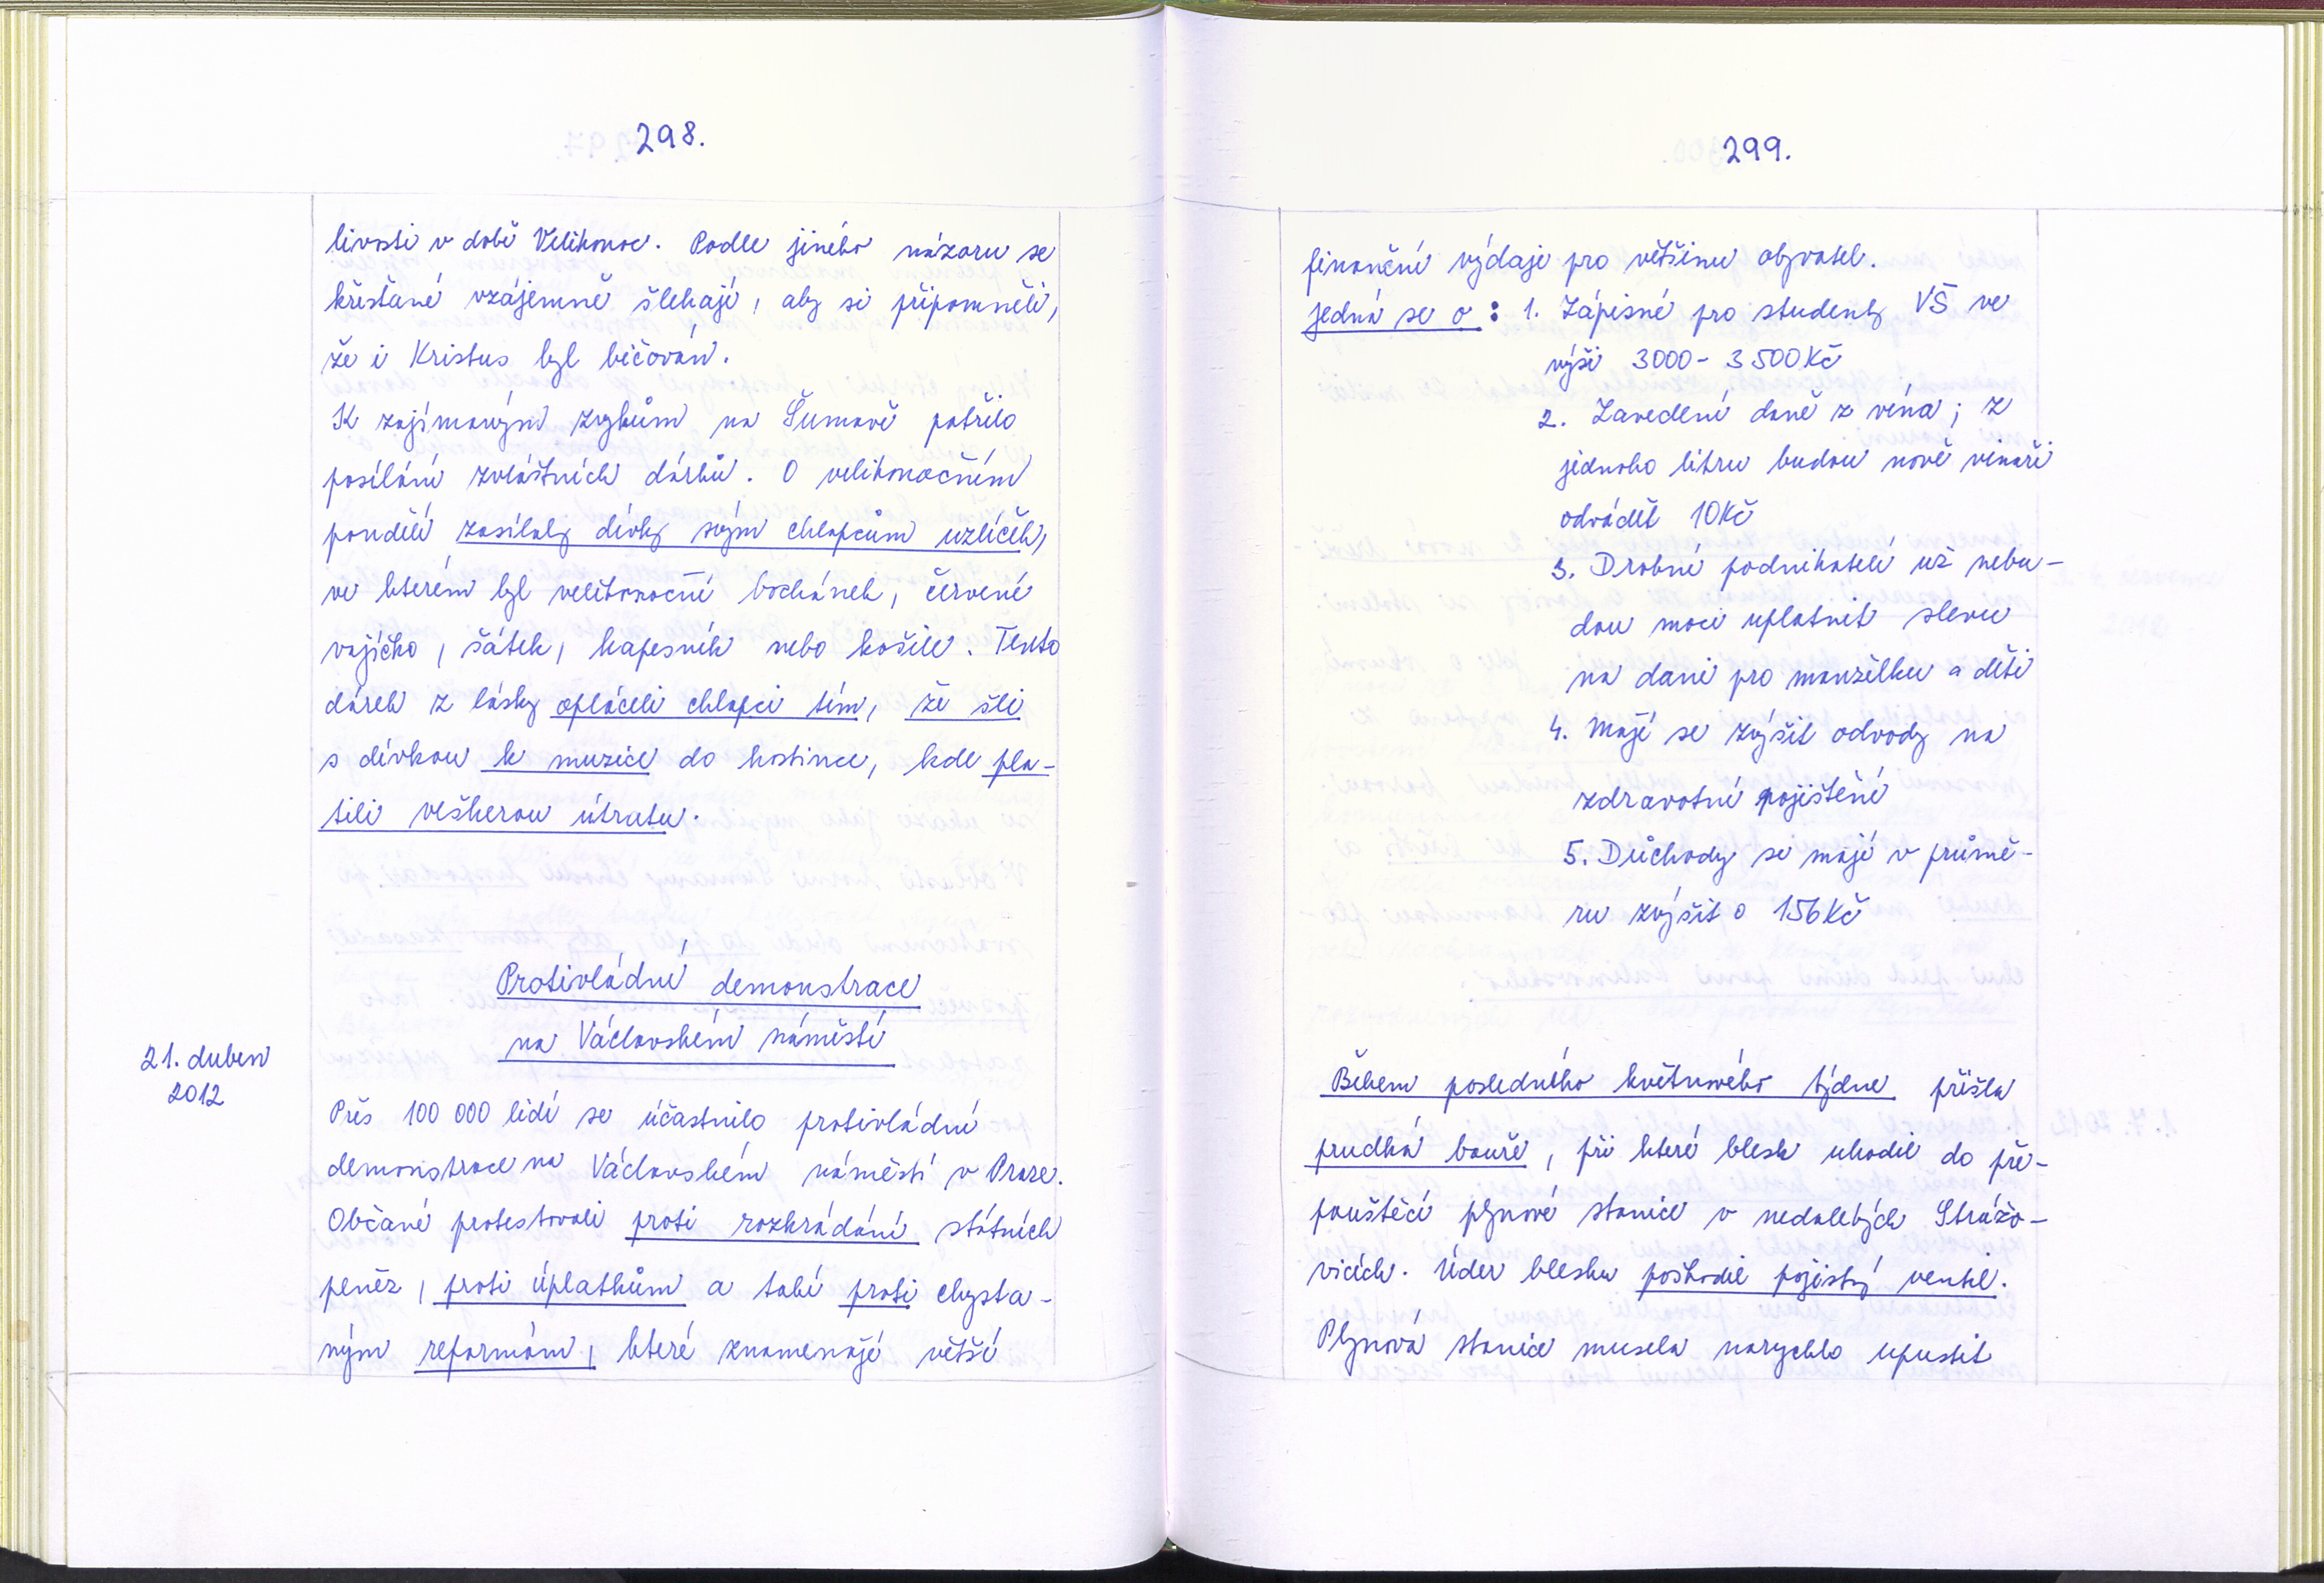 298.
livosti v době Velikonoc. Podle jiného názoru se
křesťané vzájemně šlehají, aby si připomněli,
že i Kristus byl bičován.
K zajímavým zvykům na Šumavě patřilo
posílání zvláštních dárků. O velikonočním
pondělí zasílaly dívky svým chlapcům uzlíček,
ve kterém byl velikonoční bochánek, červené
vajíčko, šátek, kapesník nebo košile. Tento
dárek z lásky opláceli chlapci tím, že šli
s dívkou k muzice do hostince, kde pla-
tili veškerou útratu.
Protivládní demonstrace
na Václavském náměstí
21. duben
2012
Přes 100 000 lidí se účastnilo protivládní
demonstrace na Václavském náměstí v Praze.
Občané protestovali proti rozkrádání státních
peněz, proti úplatkům a také proti chysta-
ným reformám, které znamenají větší
299.
finanční výdaje pro většinu obyvatel.
jedná se o: 1. Zápisné pro studenty VŠ ve
výši 3000 - 3500 Kč
2. Zavedení daně z vína; z
jednoho litru budou nově vinaři
odvádět 10 Kč
3. Drobní podnikatelé už nebu-
dou moci uplatnit slevu
na dani pro manželku a děti
4. Mají se zvýšit odvody na
zdravotní pojištění
5. Důchody se mají v průmě-
ru zvýšit o 156 Kč
Během posledního květnového týdne přišla
prudká bouře, při které blesk uhodil do pře-
pouštěcí plynové stanice v nedalekých Strážo-
vicích. Úder blesku poškodil pojistný ventil.
Plynová stanice musela narychlo upustit